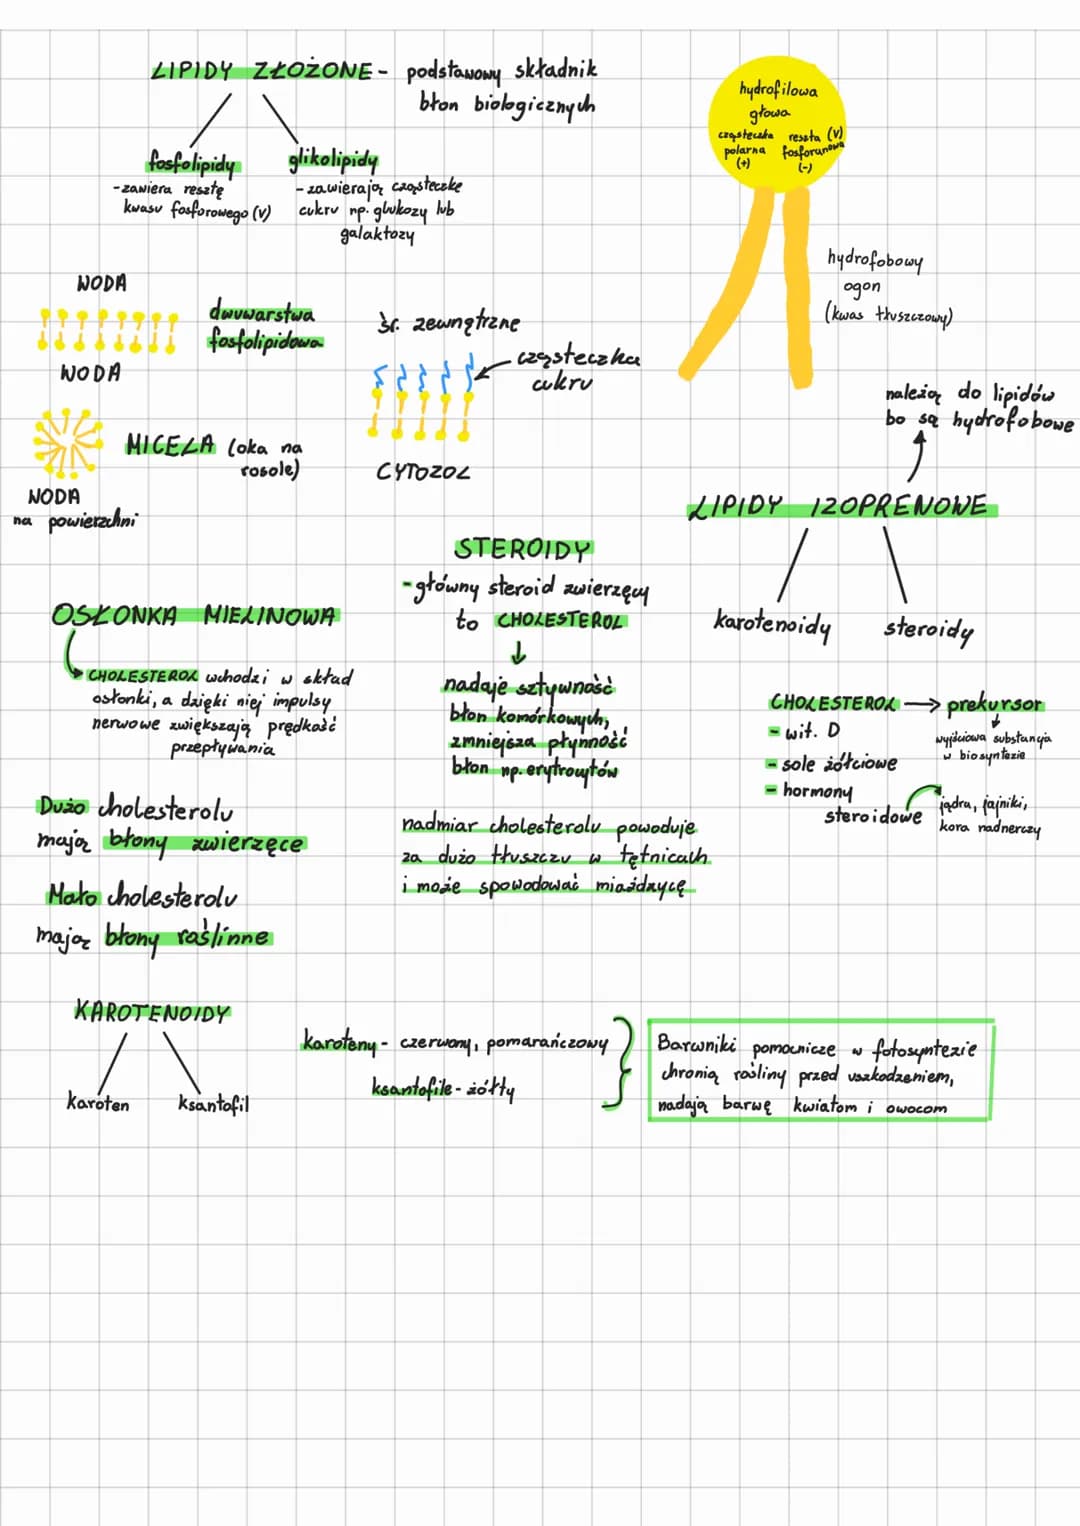 LIPIDY ZŁOŻONE - podstawowy składnik
błon biologicznych
fosfolipidy
- zawiera resztę
kwasu fosforowego (V)
glikolipidy
- zawierają cząsteczkę
cukru np. glukozy lub
galaktozy
hydrofilowa
głowa
cząsteczka
polarna
(+)
reszta (V)
fosforanowa
(-)
hydrofobowy
ogon
(kwas tłuszczowy)
WODA
WODA
dwuwarstwa
fosfolipidowa
śr. zewnętrzne
cząsteczka
cukru
CYTOZOL
MICELA (oka na
rosole)
WODA
na powierzchni
należą do lipidów
bo są hydrofobowe
LIPIDY IZOPRENOWE
karotenoidy
steroidy
STEROIDY
- główny steroid zwierzęcy
to CHOLESTEROL
nadaje sztywność
błon komórkowych,
zmniejsza płynność
błon np. erytrocytów
OSŁONKA MIELINOWA
CHOLESTEROL wchodzi w skład
osłonki, a dzięki niej impulsy
nerwowe zwiększają prędkość
przepływania
CHOLESTEROL → prekursor
- wit. D
- sole żółciowe
- hormony
steroidowe
wyjściowa substancja
w biosyntezie
jądra, jajniki,
kora nadnerczy
Dużo cholesterolu
mają błony zwierzęce
Mało cholesterolu
mają błony roślinne
nadmiar cholesterolu powoduje
za dużo tłuszczu w tętnicach
i może spowodować miażdżycę
KAROTENOIDY
karoten
ksantofil
karoteny - czerwony, pomarańczowy
ksantofile - żółty
Barwniki pomocnicze w fotosyntezie
chronią rośliny przed uszkodzeniem,
nadają barwę kwiatom i owocom